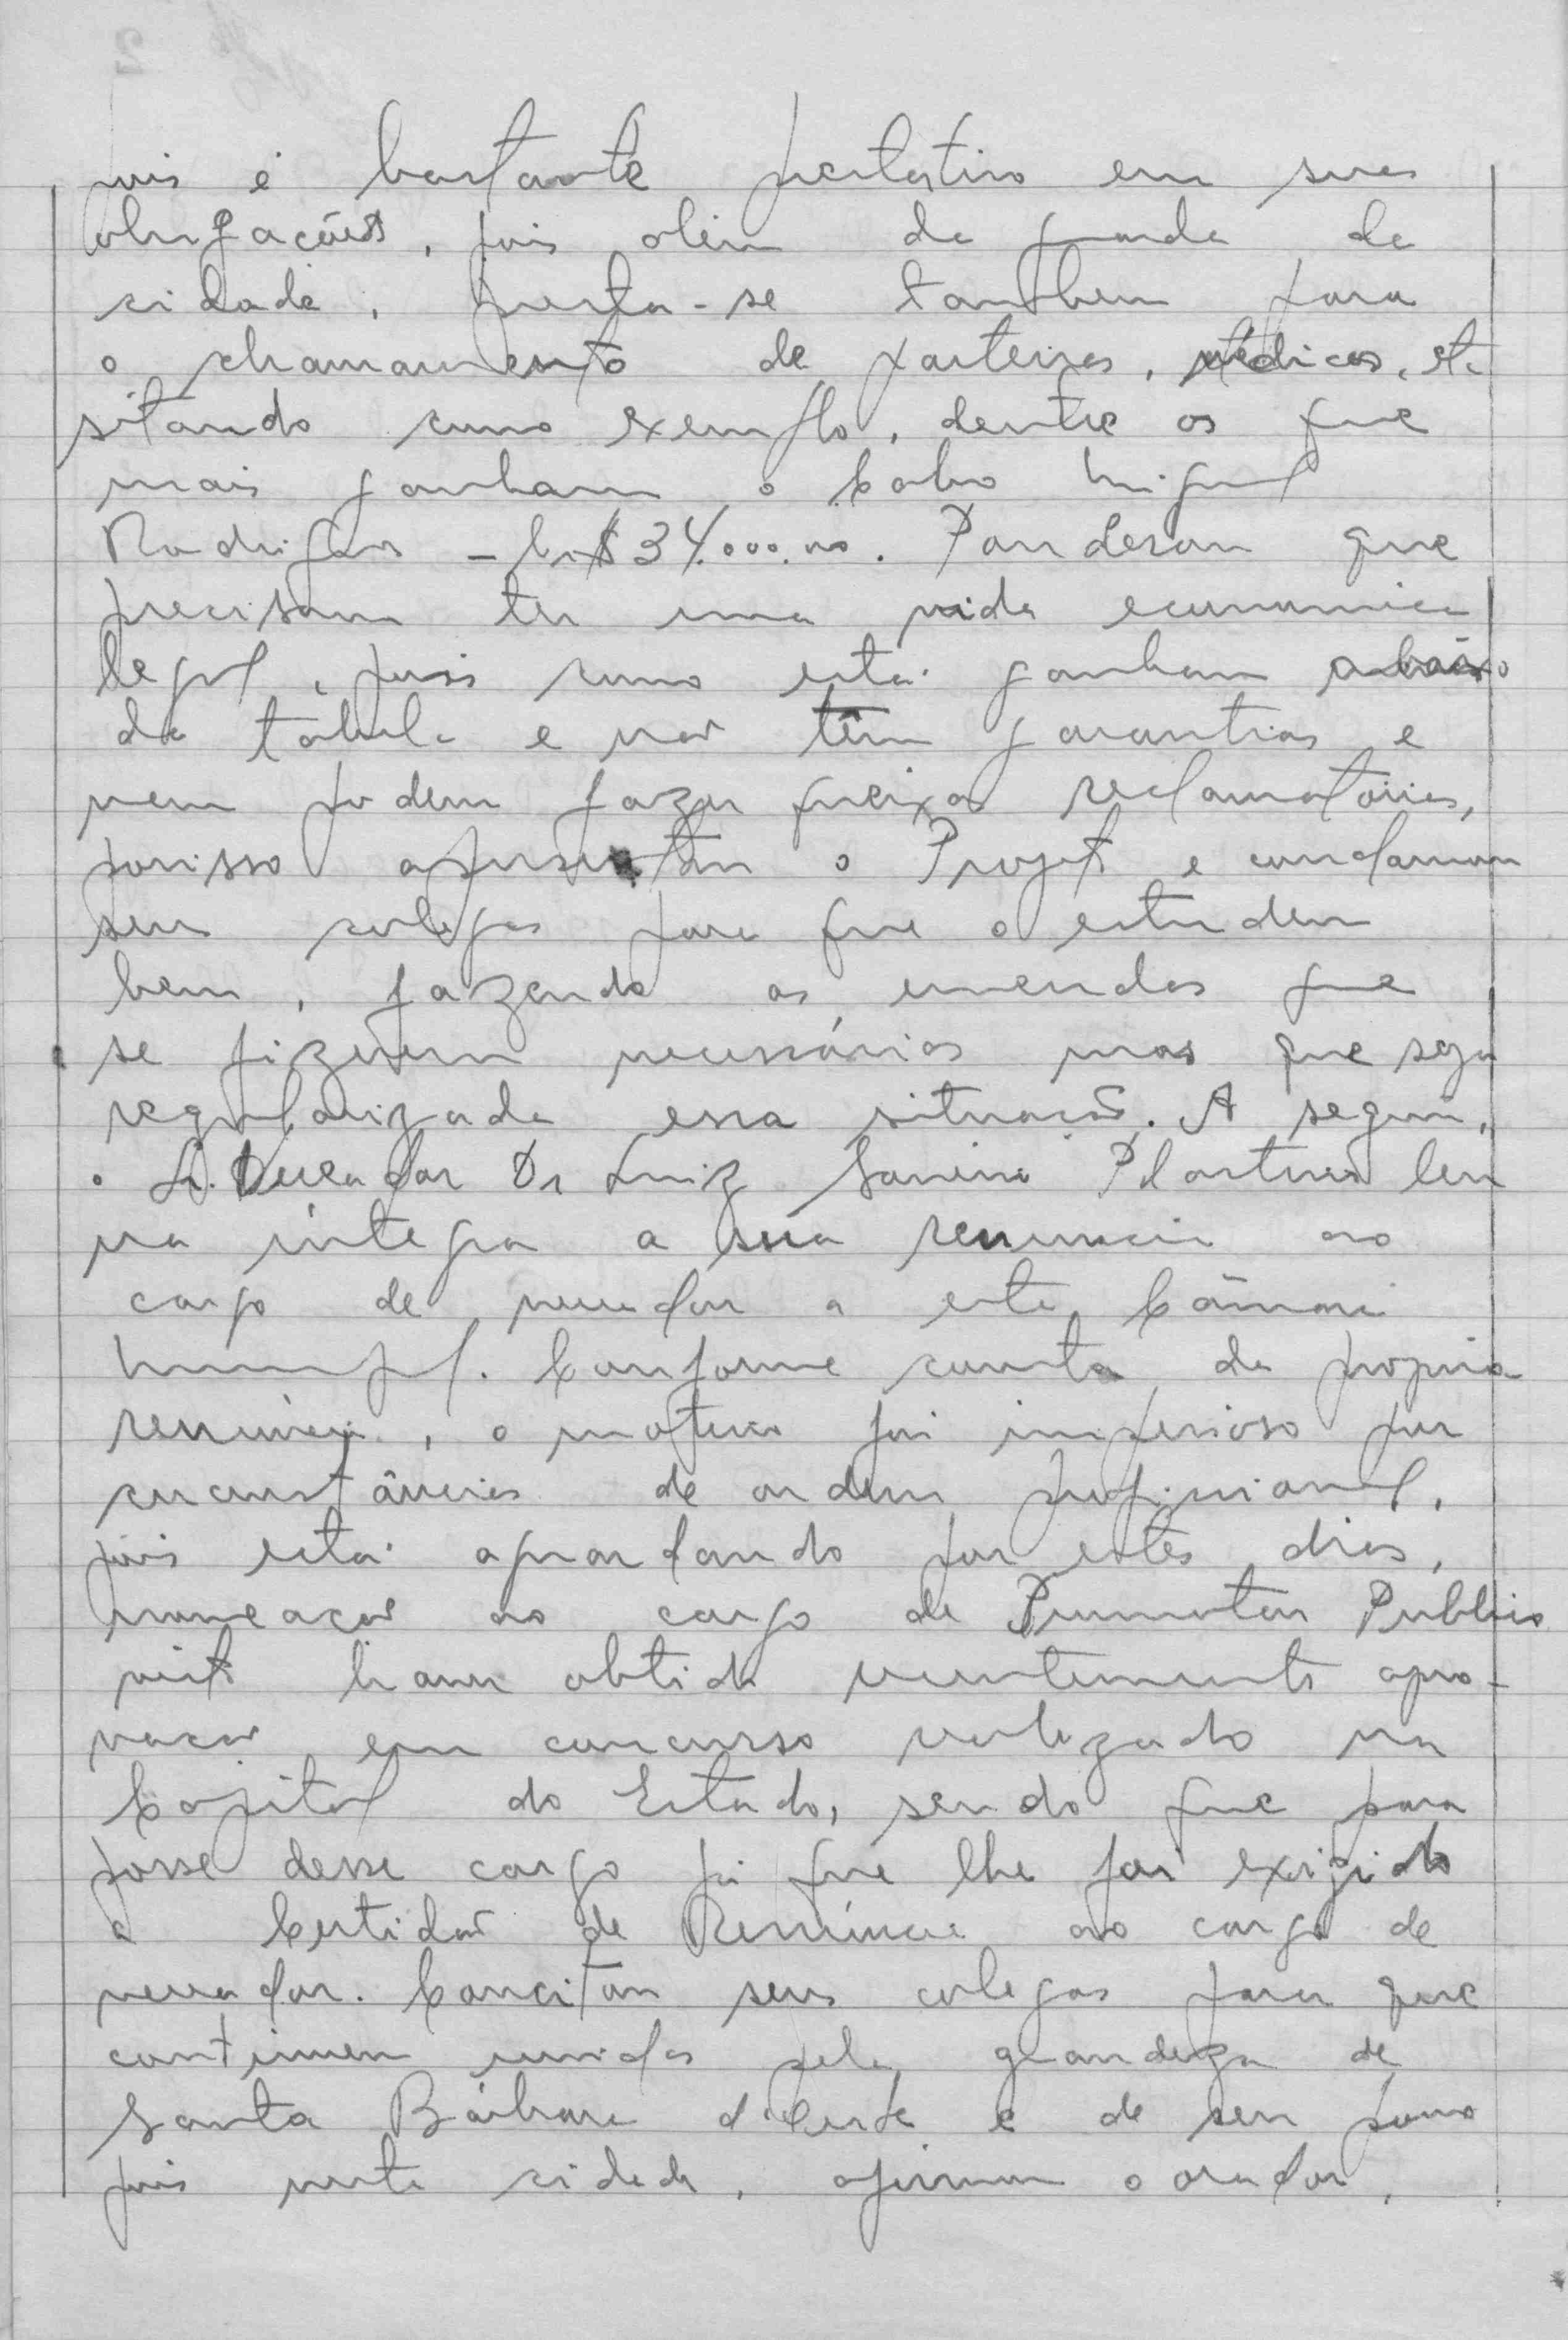 pois é bastante prestativo em suas
obrigações, pois além da guarda da
cidade, presta-se tambem para
o chamamento de parteiras, médicos, etc
sitando como exemplo, dentre os que
mais ganham o Cabo Miguel
Rodrigues - Cr$ 34.000,00. Ponderam que
precisam ter uma vida economica
legal, pois como está ganham abaixo
da tabela e não têm garantias e
nem podem fazer queixas reclamatórias,
porisso apresentam o Projeto e conclamam
seus colegas para que o estudem
bem, fazendo as emendas que
se fizerem necessárias mas que seja
regularizada essa situação. A seguir,
o Sr. Vereador Dr Luiz leu
na íntegra a sua renuncia ao
cargo de vereador a esta Câmara
Municipal. Conforme consta da propria
renúncia, o motivo foi imperioso por
circunstâncias de ordem profissional,
pois está aguardando por estes dias,
nomeação ao cargo de Promotor Publico
visto haver obtido recentemente apro-
vação em concurso realizado na
Capital do Estado, sendo que para
posse desse cargo foi que lhe foi exigido
a Certidão de Renúncia ao cargo de
vereador. Concitou seus colegas para que
continuem unidos pela grandeza de
Santa Bárbara d'Oeste e de seu povo
pois nesta cidade, afirmou o orador,